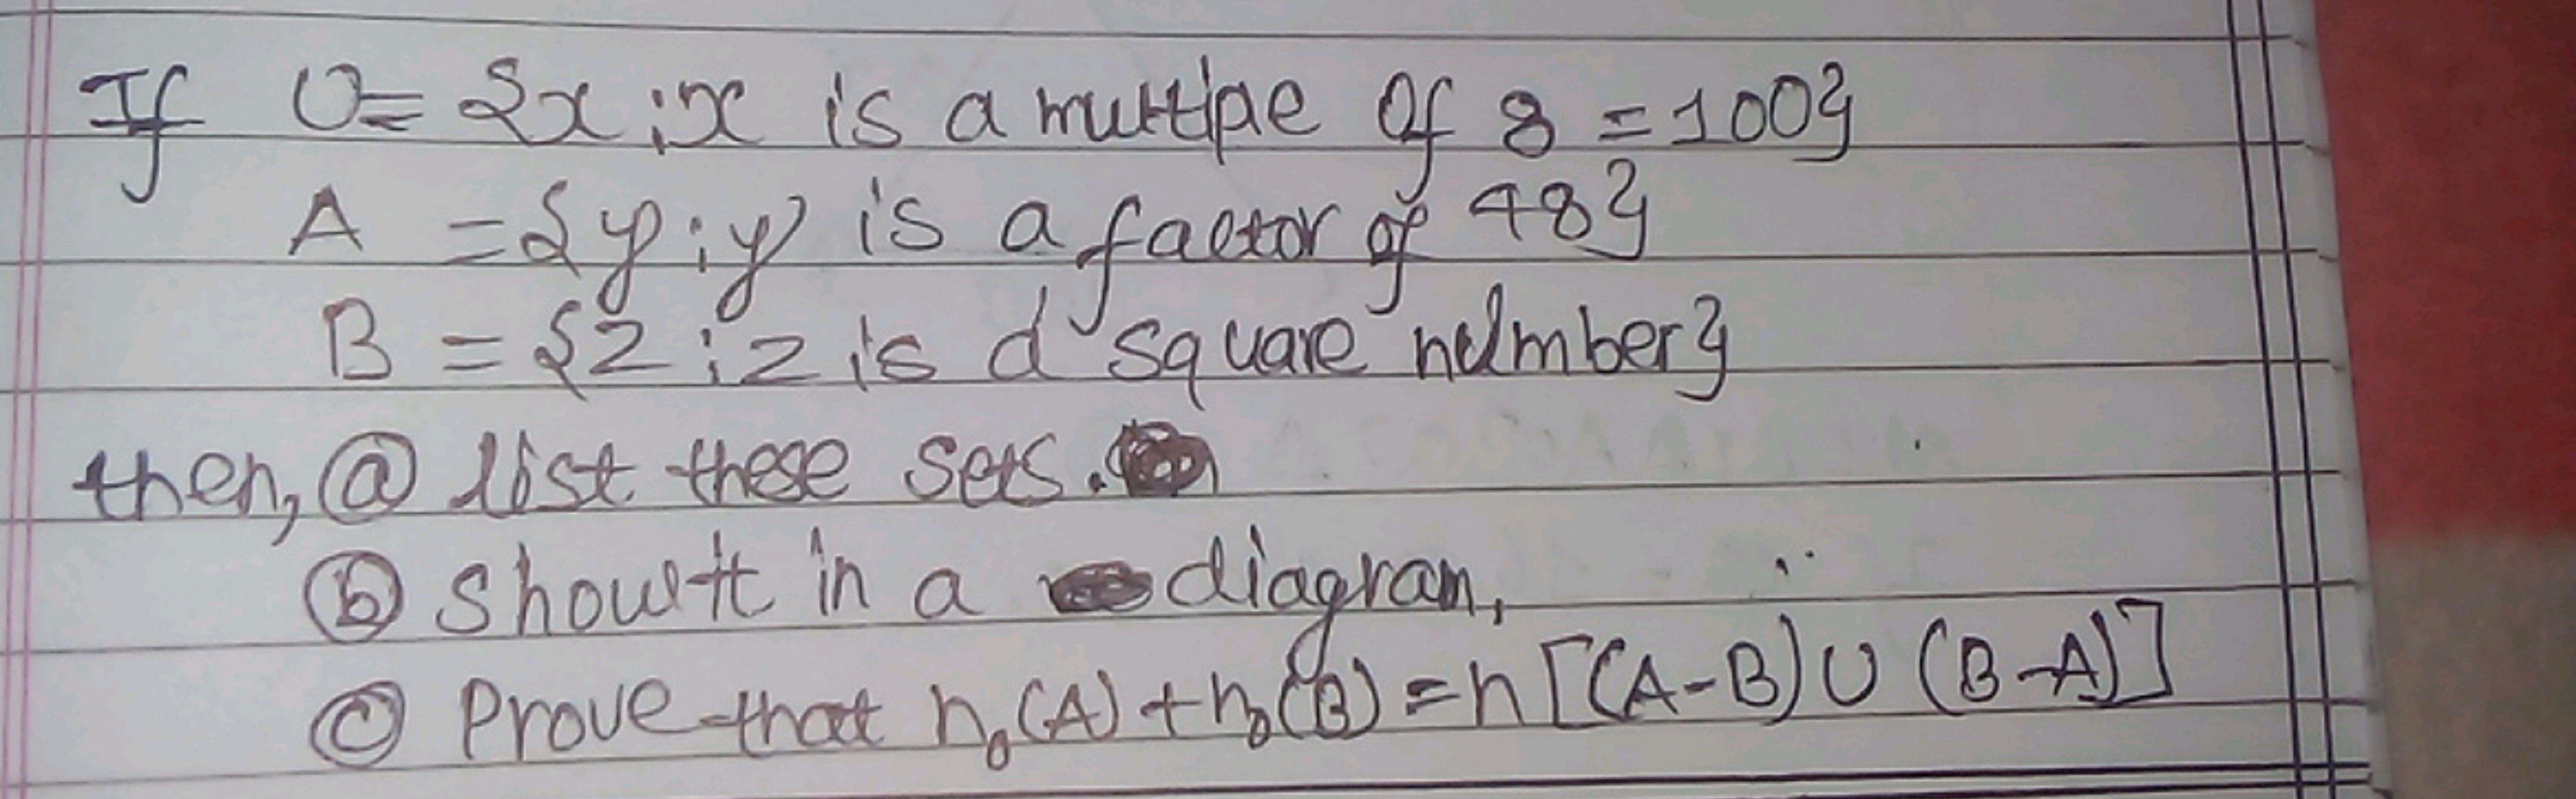 If U= {x;x is a multipe of 8 =100}
A ={y;y is a factor of 48}
B = {z;z is a square number}
then, ⓐ list these sets.
ⓑ show it in a diagram,
ⓒ Prove that n₀(A)+n₀(B)=n[(A-B)∪(B-A)]